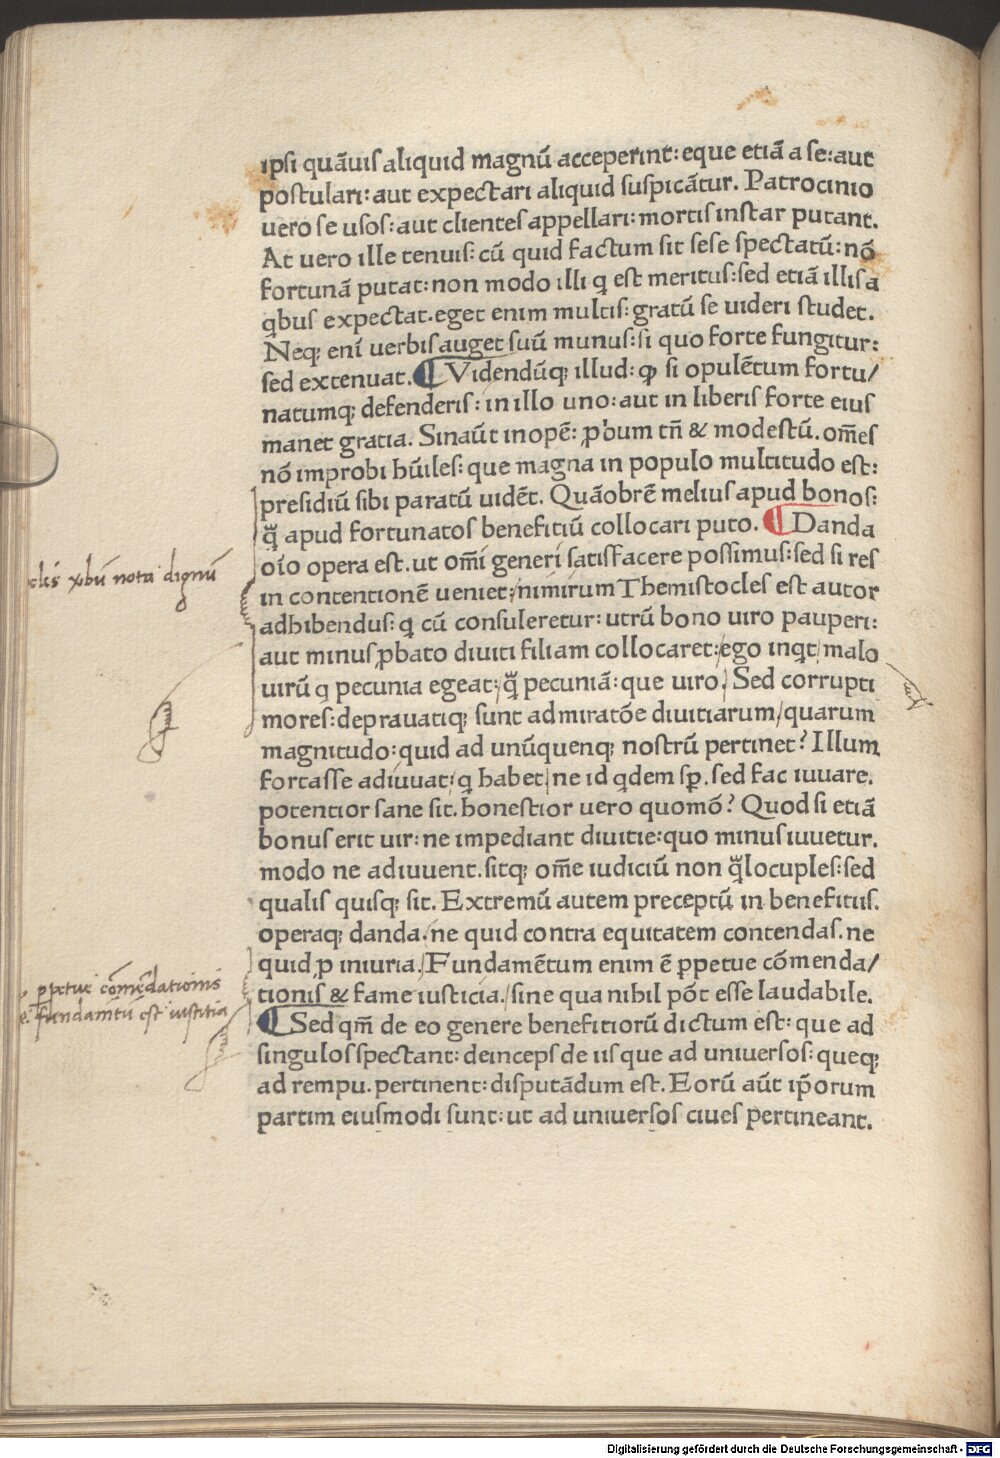 ipsi quāuis aliquid magnū acceperint: eque etiā a se: aut
postulari: aut expectari aliquid suspicātur. Patrocinio
uero se usos: aut clientes appellari: mortis instar putant.
At uero ille tenuis: cū quid factum sit sese spectatū: nō
fortunā putat: non modo illi q̣ est meritus: sed etiā illis a
q̣bus expectat. eget enim multis: gratū se uideri studet.
Neq; enī uerbis auget suū munus: si quo forte fungitur:
sed extenuat. ¶ Videndūq; illud: ꝙ si opulētum fortu/
natumq; defenderis: in illo uno: aut in liberis forte eius
manet gratia. Sin aūt inopē: ꝓbum tn̄ & modestū. om̄es
nō improbi hūiles: que magna in populo multitudo est:
presidiū sibi paratū uidēt. Quāobrē melius apud bonos:
q̄ apud fortunatos benefitiū collocari puto. ¶ Danda
oīo opera est. ut om̄i generi satisfacere possimus: sed si res
in contentionē ueniet: nimirum Themistocles est autor
adhibendus: q̣ cū consuleretur: utrū bono uiro pauperi:
aut minus ꝓbato diuiti filiam collocaret: ego inq̣t malo
uirū q̣ pecunia egeat: q̄ pecuniā: que uiro. Sed corrupti
mores: deprauatiq; sunt admiratōe diuitiarum/quarum
magnitudo: quid ad unūquenq; nostrū pertinet? Illum
fortasse adiuuat: q̣ habet ne id q̣dem sꝑ. sed fac iuuare.
potentior sane sit. honestior uero quomō? Quod si etiā
bonus erit uir: ne impediant diuitie: quo minus iuuetur.
modo ne adiuuent. sitq; om̄e iudiciū non q̄ locuples: sed
qualis quisq; sit. Extremū autem preceptū in benefitiis.
operaq; danda. ne quid contra equitatem contendas. ne
quid ꝓ iniuria. Fundamētum enim ē ꝑpetue cōmenda/
tionis & fame iusticia. sine qua nihil pōt esse laudabile.
¶ Sed qm̄ de eo genere benefitiorū dictum est: que ad
singulos spectant: deinceps de iis que ad uniuersos: queq;
ad rempu. pertinent: disputādum est. Eorū aūt ip̄orum
partim eiusmodi sunt: ut ad uniuersos ciues pertineant.
clis ꝟbū nota dignū
ꝑpetue cōmēdationis
fundamētū est iustitia
Digitalisierung gefördert durch die Deutsche Forschungsgemeinschaft - DFG